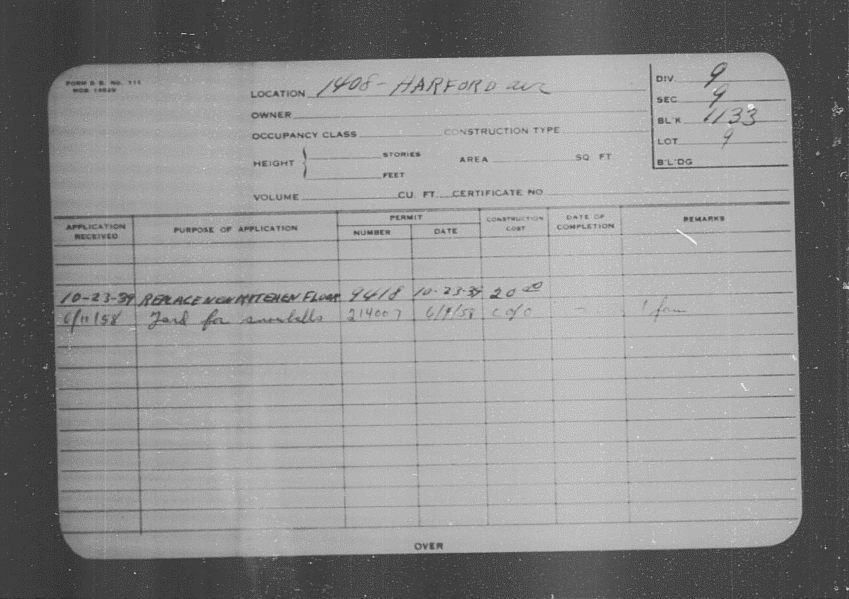 FORM B. E. No. 111
LOCATION 1408 - HARFORD ave
OWNER
OCCUPANCY CLASS CONSTRUCTION TYPE
HEIGHT STORIES FEET AREA SQ FT
VOLUME CU. FT. CERTIFICATE NO
DIV. 9
SEC 9
BL'K 1133
LOT 9
B'L'DG
APPLICATION RECEIVED PURPOSE OF APPLICATION PERMIT NUMBER DATE CONSTRUCTION COST DATE OF COMPLETION REMARKS
10-23-39 REPLACE NEW KITCHEN FLOOR 9418 10-23-39 20 00
6/11/58 Yard for snowballs 214007 6/9/58 C of O - 1 fam
OVER